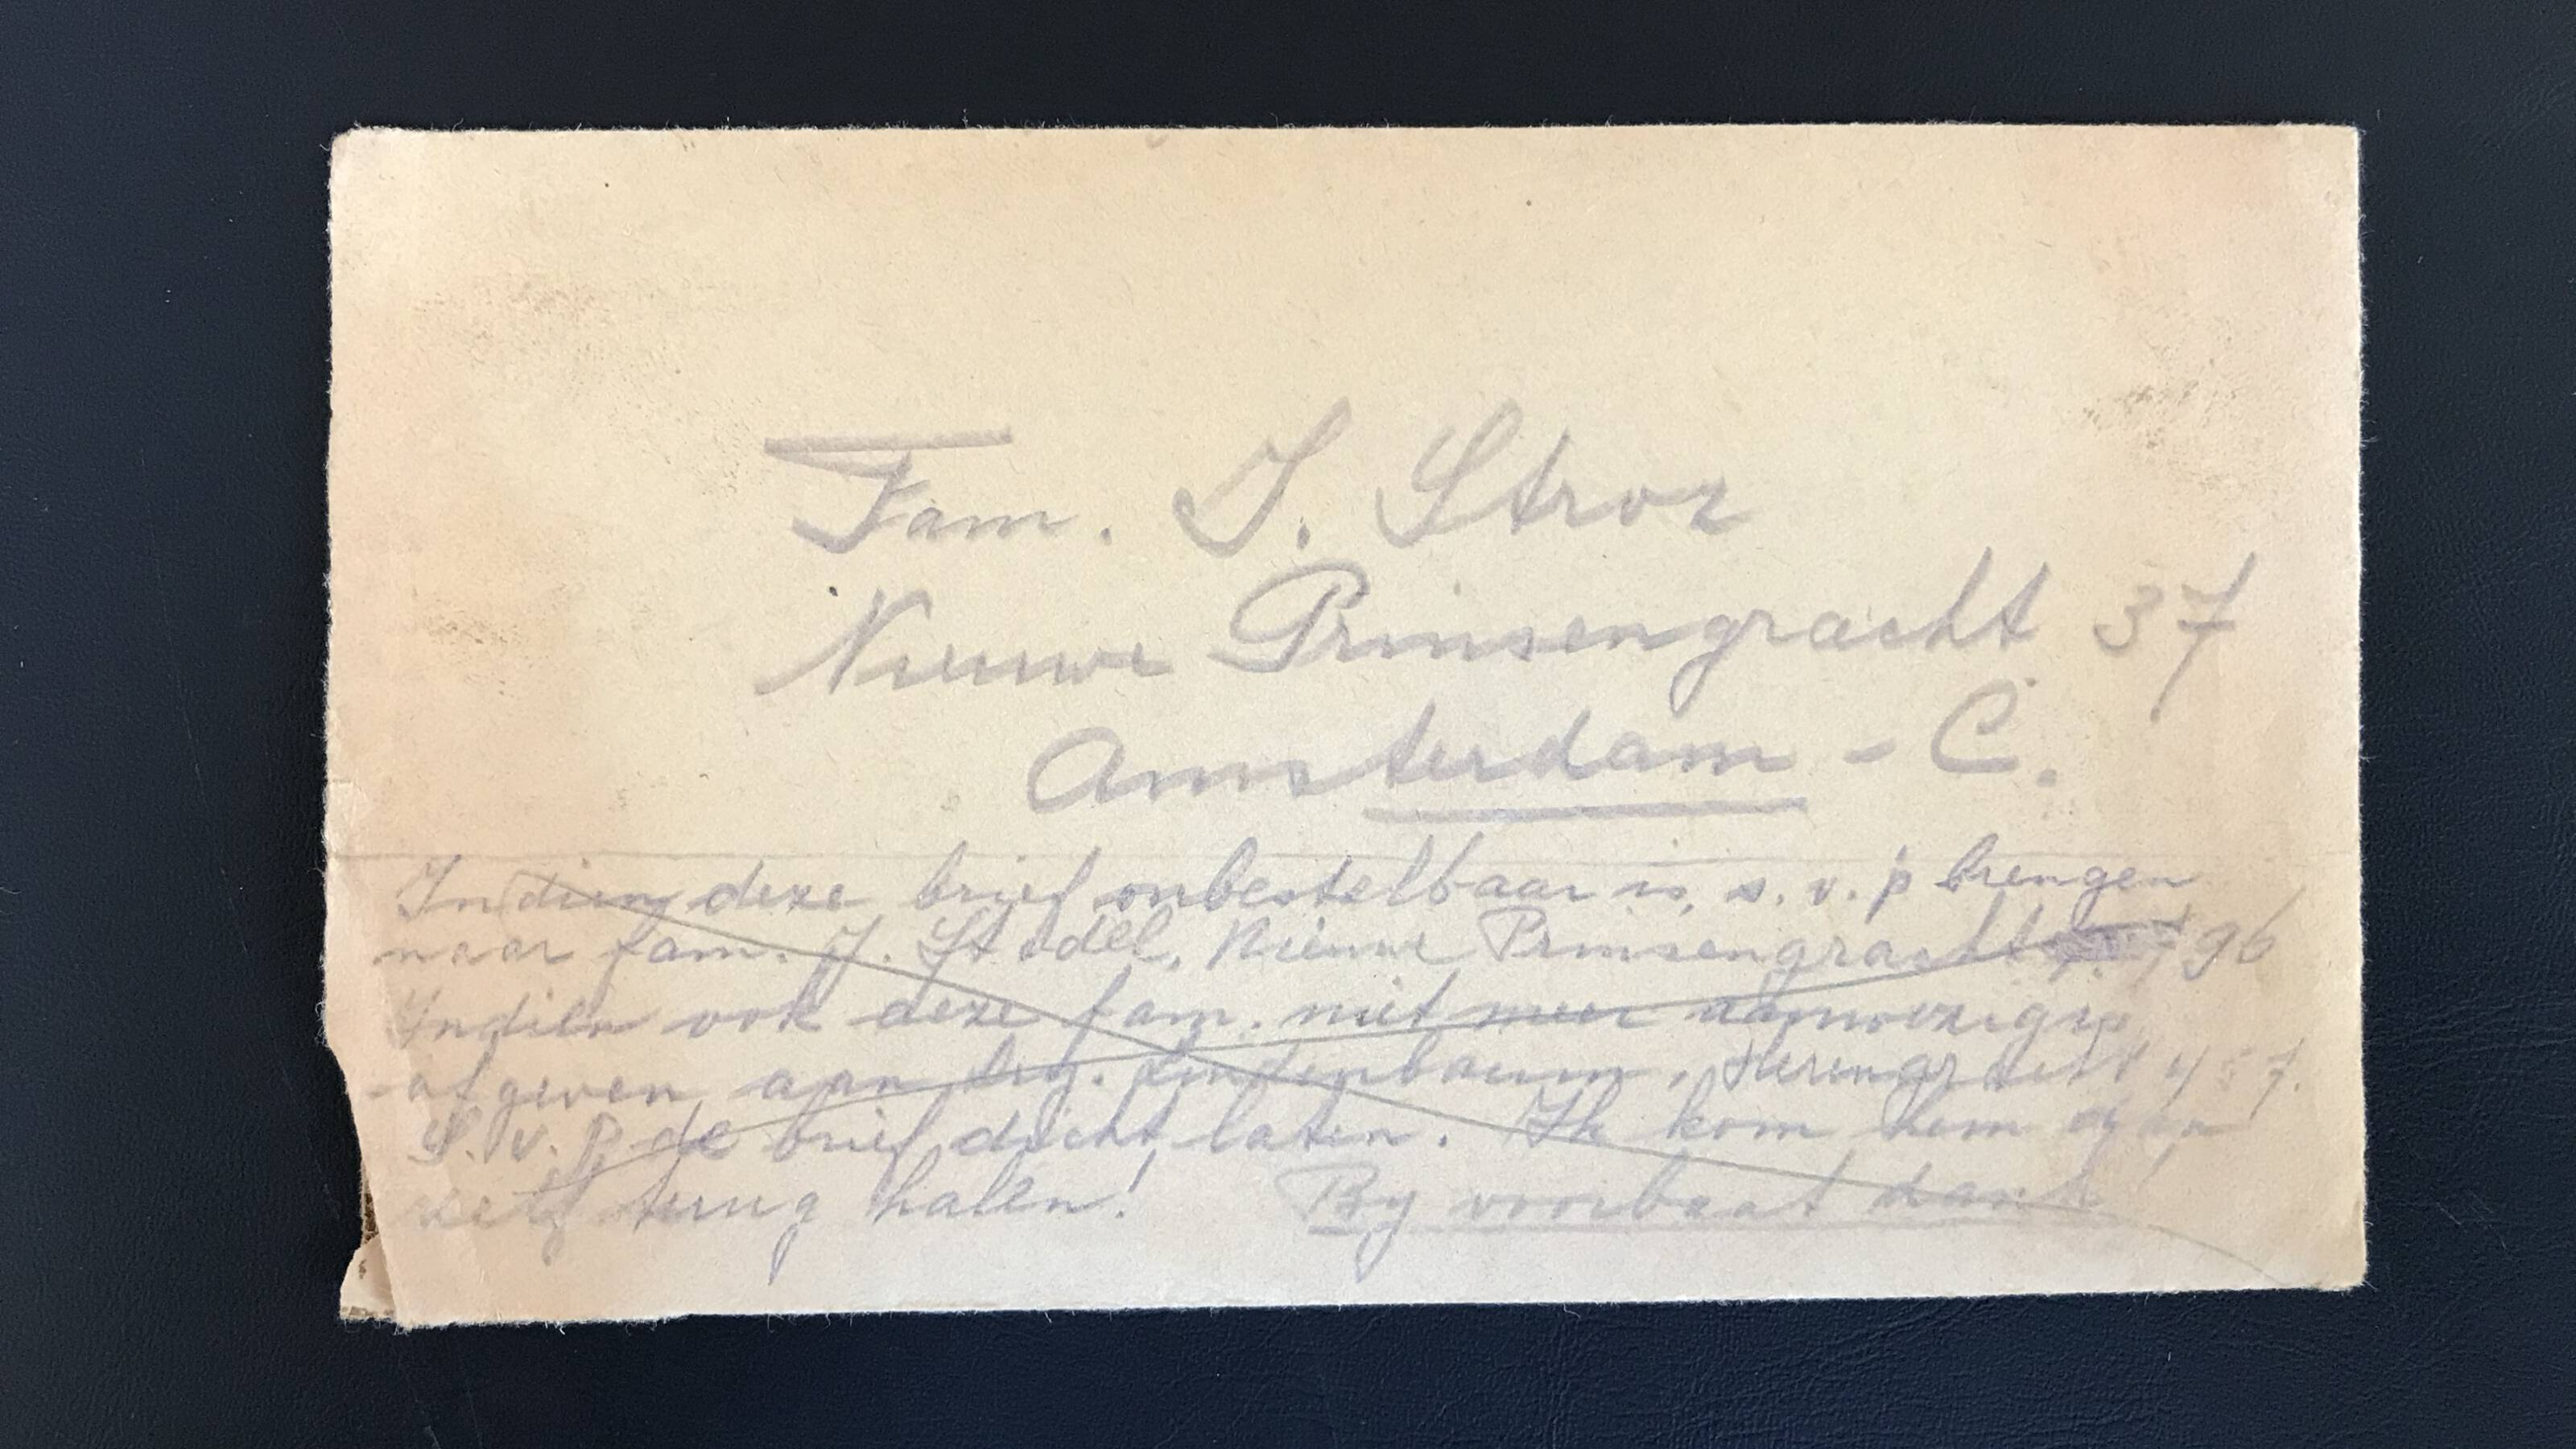 Fam. J. Stroz
Nieuwe Prinsengracht 37
Amsterdam - C.
Indien deze brief onbestelbaar is, s. v. p brengen
naar fam. J. Stodel, Nieuwe Prinsengracht 96
Indien ook deze fam. niet meer aanwezig is
afgeven aan Lindenbaum, Herengracht 457.
S. v. p. de brief dicht laten. Ik kom hem
zelf terug halen! By voorbaat dank!